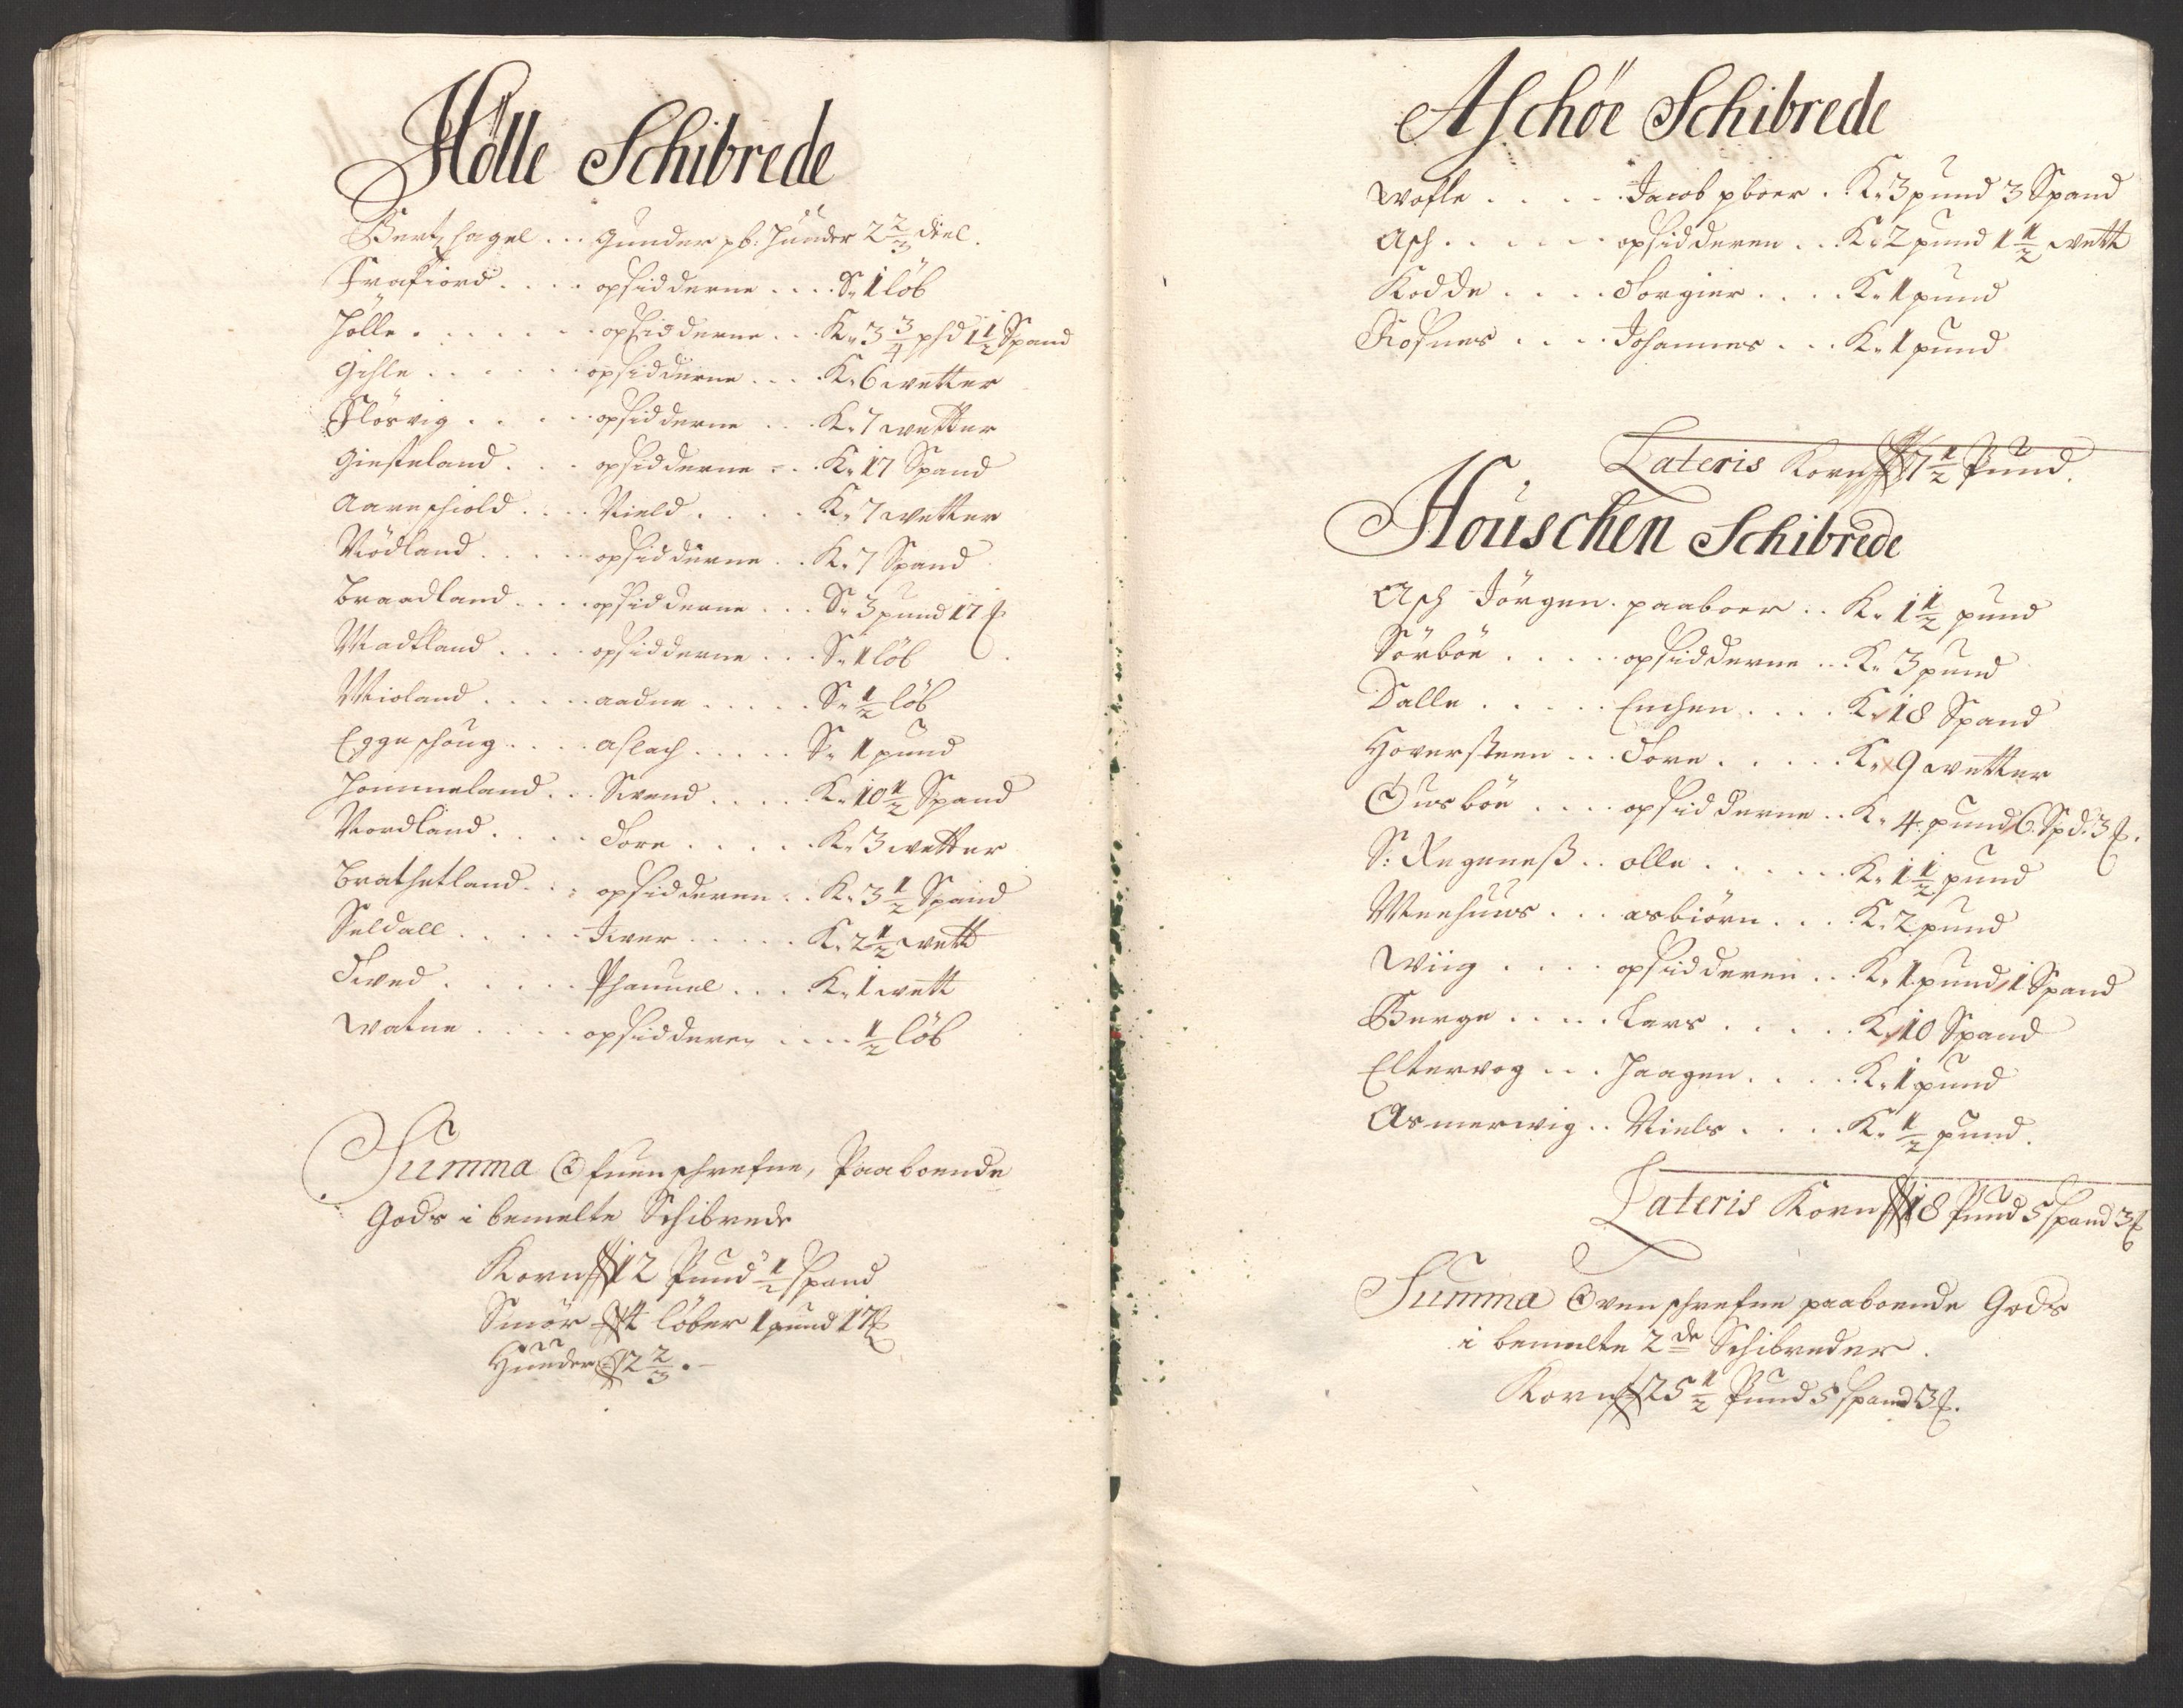 Hölle Schibrede
Bertzhagel ... Gunder pb: Hunder 2 2/3 deel.
Frafiord .... opsidderne .... S. 1 löb
Hölle ...... opsidderne .. K. 3 3/4 phd 1 1/2 Spand
Gihle ..... opsidderne ... K. 6 wetter
Flösvig .... opsidderne ... K. 7 wetter
Giesteland ... opsidderne ... K. 17 Spand
Aareschiold .... Niels .... K. 7 wetter
Nödland .... opsidderne .. K. 7 Spand
Braadland .... opsidderne ... S. 3 pund 17 ℔
Madland .... opsidderne ... S. 1 löb
Mioland .... aadne .... S. 1/2 löb
Eggeschoug .... aslach .... S. 1 pund
Hommeland ... Svend .... K. 10 1/2 Spand
Nordland .... Tore .... K. 3 wetter
Brathetland ... opsidderen .. K. 3 1/2 Spand
Seldall .... Iver .... K. 2 1/2 wett
Tved .... Phanuel ... K. 1 wett
Watne .... opsidderen .... 1/2 löb
Summa Ofuenschrefne, Paaboende
Gods i bemelte Schibrede
Korn 12 Pund 1/2 Spand
Smör 4 löber 1 pund 17 ℔
Hunder 2 2/3 .
Aschöe Schibrede
Wofle .... Jacob pboer . K. 3 pund 3 Spand
Asch ..... opsidderen .. K. 2 pund 1 1/2 wett
Kodde .... Torgier .... K. 1 pund
Fiosnes .... Johannes ... K. 1 pund
Lateris Korn 7 1/2 Pund.
Houschen Schibrede
Asch Jörgen . paaboer .. K. 1 1/2 pund
Sörböe .... opsidderne .. K. 3 pund
Dalle .... Enchen .... K. 18 Spand
Hoversteen ... Tore .... K. 9 wetter
Ousböe .... opsidderne .. K. 4 pund 6 Spd. 3 ℔.
S: Regeneß .. olle .... K. 1 1/2 pund
Meehuus ... asbiörn ... K. 2 pund
Wiig .... opsidderen .. K. 1 pund 1 Spand
Berge .... Lars .... K. 10 Spand
Eltervog ... Haagen .... K. 1 pund
Asmervig .. Niels .... K. 1/2 pund.
Lateris Korn 18 Pund 5 spand 3 ℔
Summa Ovenschrefne paaboende Gods
i bemelte 2de Schibreder.
Korn 25 1/2 Pund 5 spand 3 ℔.